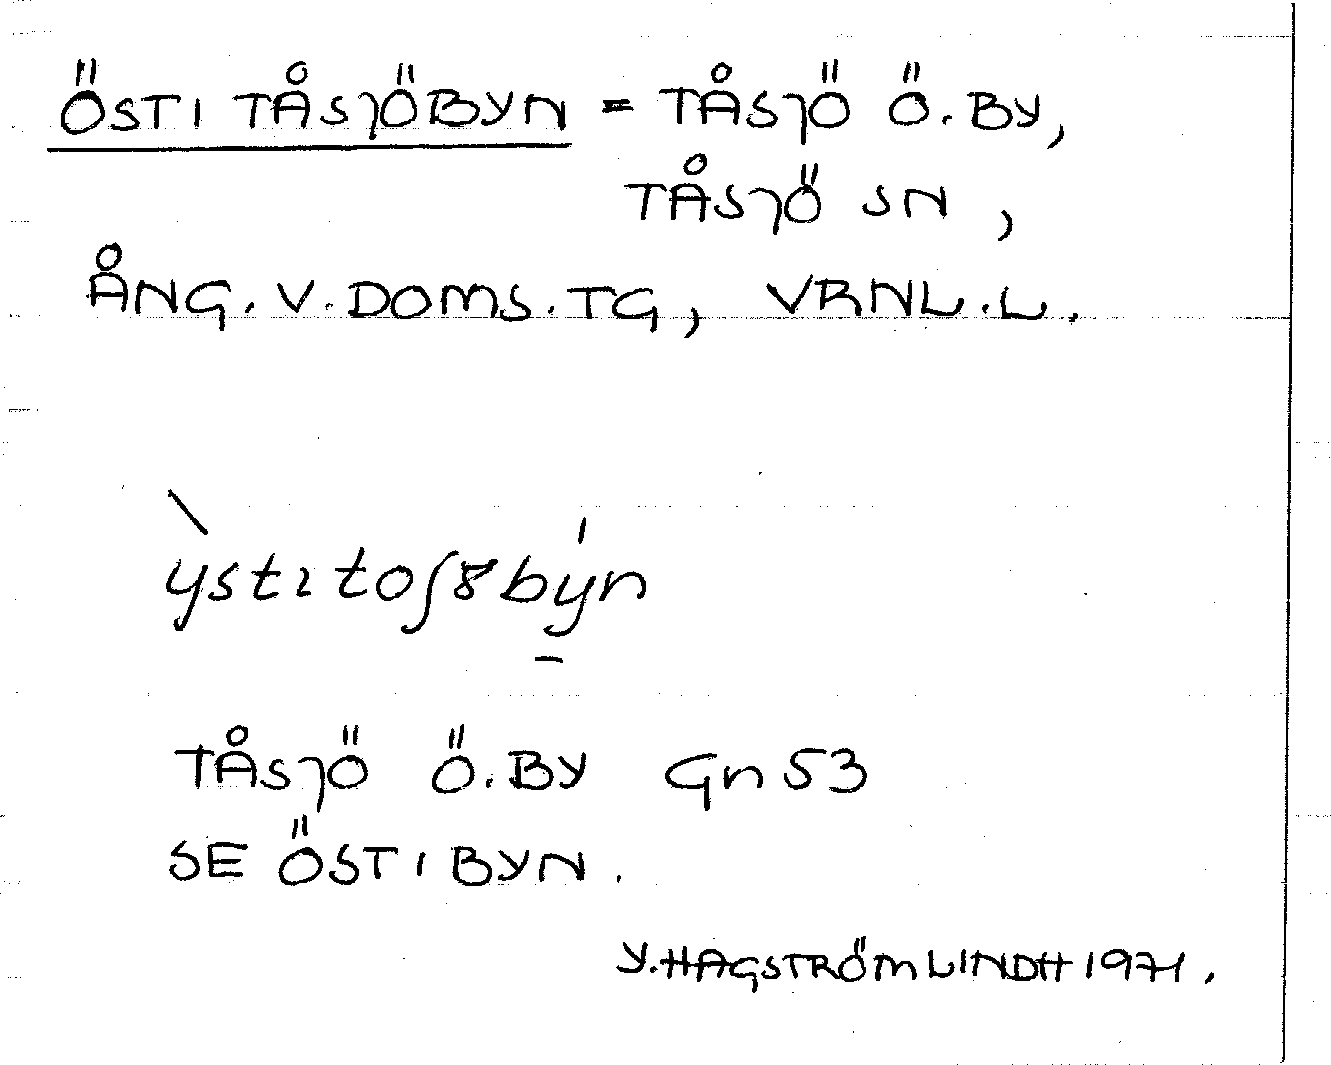 ÖSTI TÅSJÖBYN = TÅSJÖ Ö. BY,
TÅSJÖ SN,
ÅNG. V. DOMS. TG, VRNL. L.
ỳstıtoʃ8býn
TÅSJÖ Ö. BY Gn 53
SE ÖSTI BYN.
Y. HAGSTRÖM LINDH 1971.